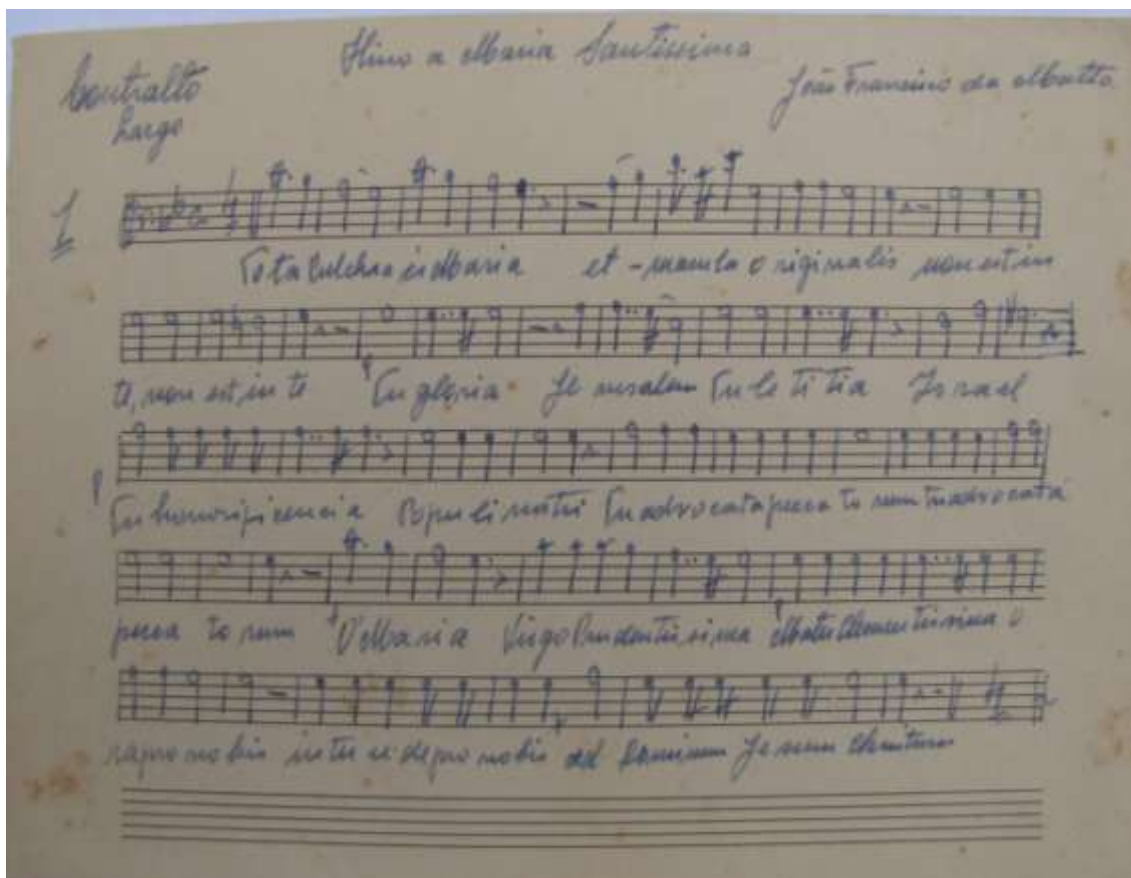 Hino a Maria Santissima
Contralto
João Francisco da Matta
Largo
1
Tota Pulchra es Maria et - macula originalis non est in
te, non est in te Tu gloria Jerusalem Tu letitia Israel
Tu honorificencia Populi nostri Tu advocata peccatorum Tu advocata
peccatorum O Maria Virgo Prudentissima Mater Clementissima o
ra pro nobis intercede pro nobis ad Dominum Jesum Christum